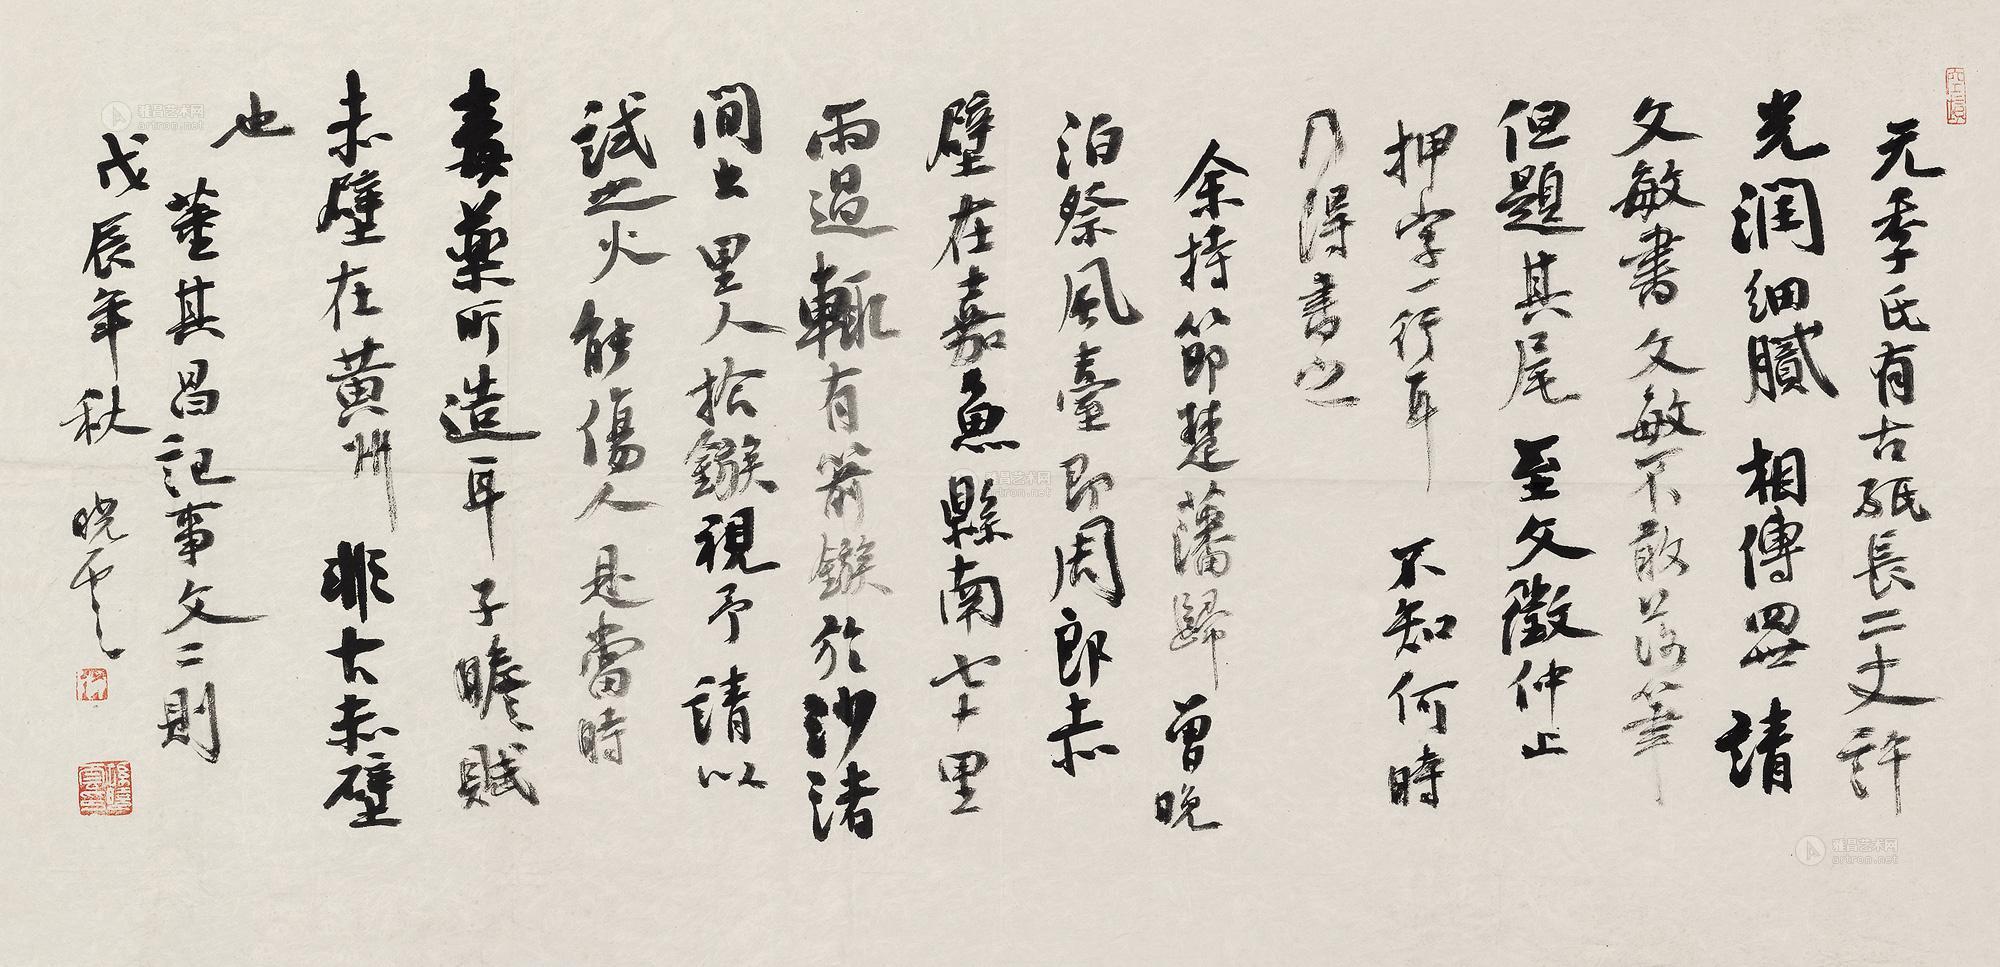 元季氏有古紙長二丈許
光潤細膩相傳四世請
文敏書文敏不敢落筆
但題其尾至文徵仲止
押字一行耳不知何時
乃得書也
余持節楚藩歸曾晚
泊祭風臺即周郎赤
壁在嘉魚縣南七十里
雨過輒有箭鏃於沙渚
間出里人拾鏃視予請以
試之火能傷人是當時
毒藥所造耳子瞻賦
赤壁在黃州非古赤壁
也
董其昌記事文二則
戊辰年秋 曉雲
雅昌艺术网
artron.net
雅昌艺术网
artron.net
雅昌艺术网
artron.net